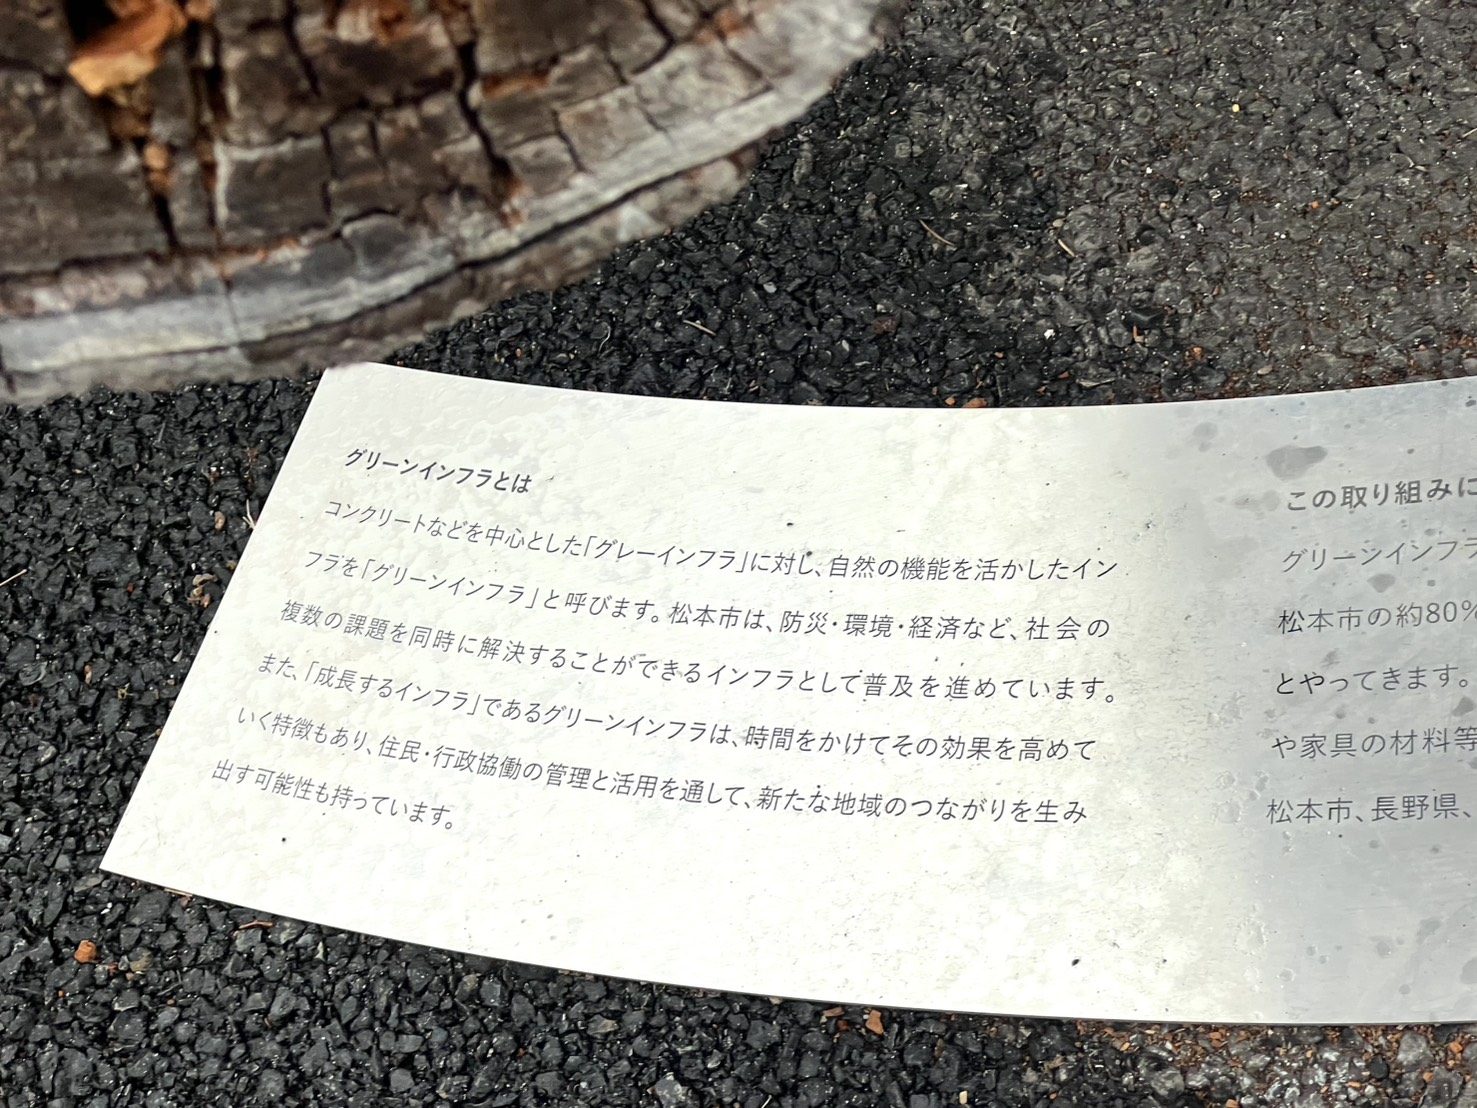 グリーンインフラとは
コンクリートなどを中心とした「グレーインフラ」に対し、自然の機能を活かしたイン
フラを「グリーンインフラ」と呼びます。松本市は、防災・環境・経済など、社会の
複数の課題を同時に解決することができるインフラとして普及を進めています。
また、「成長するインフラ」であるグリーンインフラは、時間をかけてその効果を高めて
いく特徴もあり、住民・行政協働の管理と活用を通して、新たな地域のつながりを生み
出す可能性も持っています。
この取り組みに
グリーンインフラ
松本市の約80%
とやってきます。
や家具の材料等
松本市、長野県、